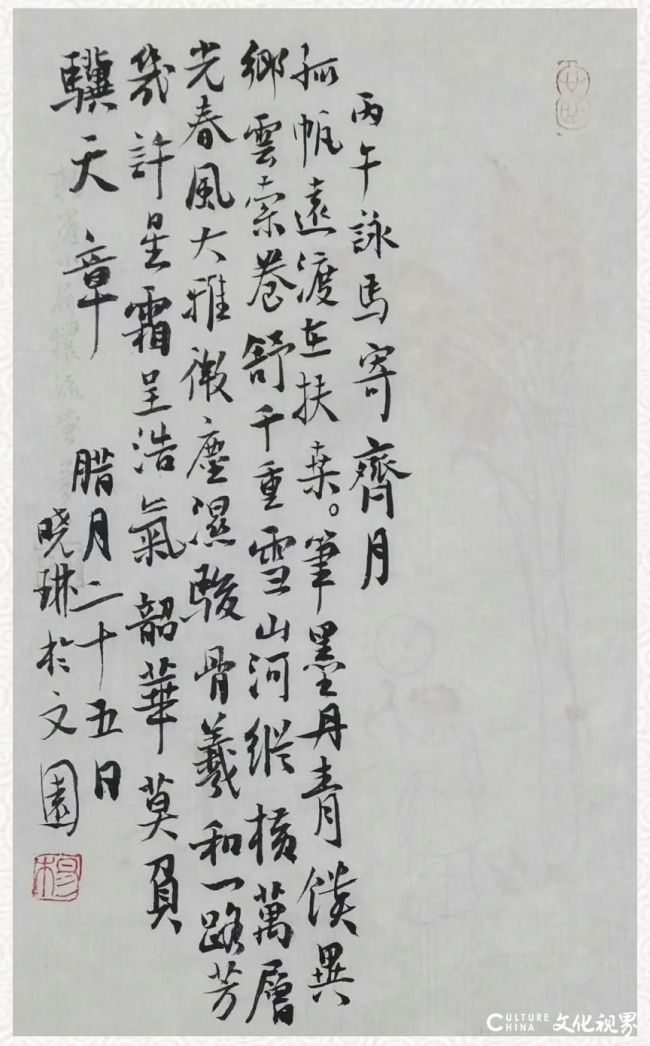 丙午詠馬寄齊月
孤帆遠渡在扶桑。筆墨丹青饋異
鄉雲卷舒千重雪山河縱橫萬層
光春風大雅微塵濕駿骨羲和一路芳
幾許星霜呈浩氣韶華莫負
驥天章
腊月二十五日
晓琳於文園
穆
CULTURE CHINA 文化視界